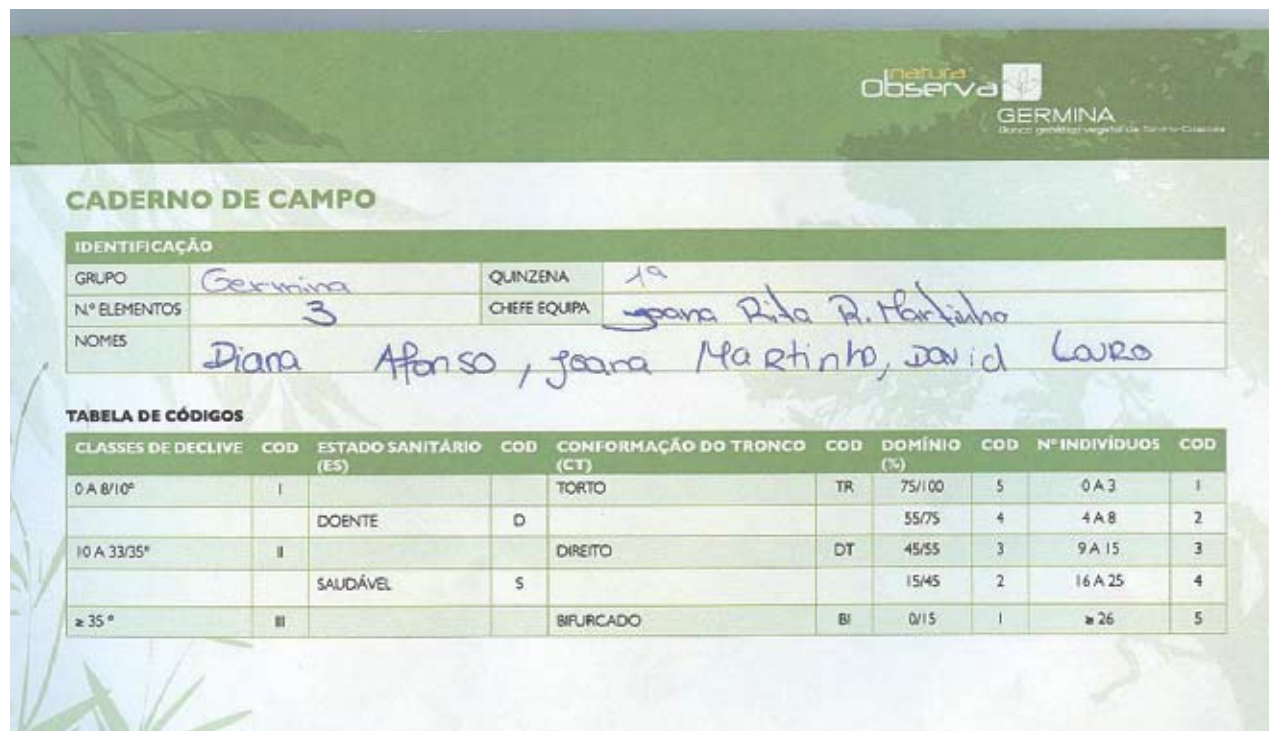 natura
Observa
GERMINA
Banco genético vegetal de Sintra-Cascais
CADERNO DE CAMPO
IDENTIFICAÇÃO
GRUPO Germina QUINZENA 1ª
N.º ELEMENTOS 3 CHEFE EQUIPA Joana Rita R. Martinho
NOMES Diana Afonso, Joana Martinho, David Louro
TABELA DE CÓDIGOS
CLASSES DE DECLIVE COD ESTADO SANITÁRIO (ES) COD CONFORMAÇÃO DO TRONCO (CT) COD DOMÍNIO (%) COD Nº INDIVÍDUOS COD
0 A 8/10º I TORTO TR 75/100 5 0 A 3 1
DOENTE D 55/75 4 4 A 8 2
10 A 33/35º II DIREITO DT 45/55 3 9 A 15 3
SAUDÁVEL S 15/45 2 16 A 25 4
≥ 35 º III BIFURCADO BI 0/15 1 ≥ 26 5